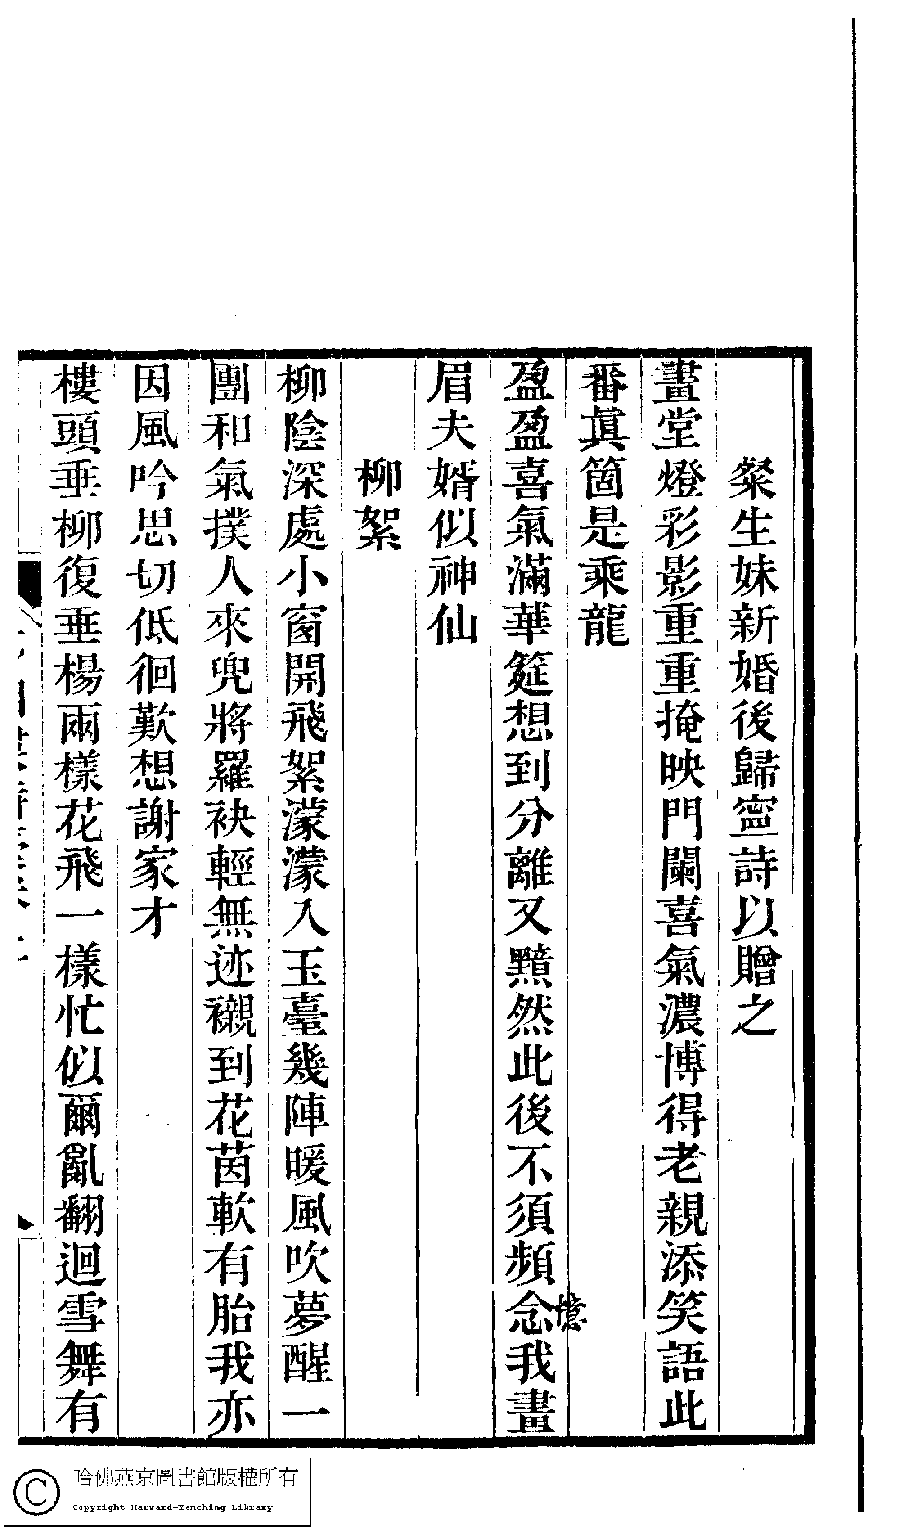 粲生妹新婚後歸寍詩以贈之
畫堂燈彩影重重掩映門闌喜氣濃博得老親添笑語此
番眞箇是乘龍
盈盈喜氣滿華筵想到分離又黯然此後不須頻念我畫
憶
眉夫婿似神仙
柳絮
柳陰深處小窗開飛絮濛濛入玉臺幾陣暖風吹夢醒一
團和氣撲人來兜將羅袂輕無迹襯到花茵軟有胎我亦
因風吟思切低徊歎想謝家才
樓頭垂柳復垂楊兩樣花飛一樣忙似爾亂翻迴雪舞有
哈佛燕京圖書館版權所有
Copyright Harvard-Yenching Library